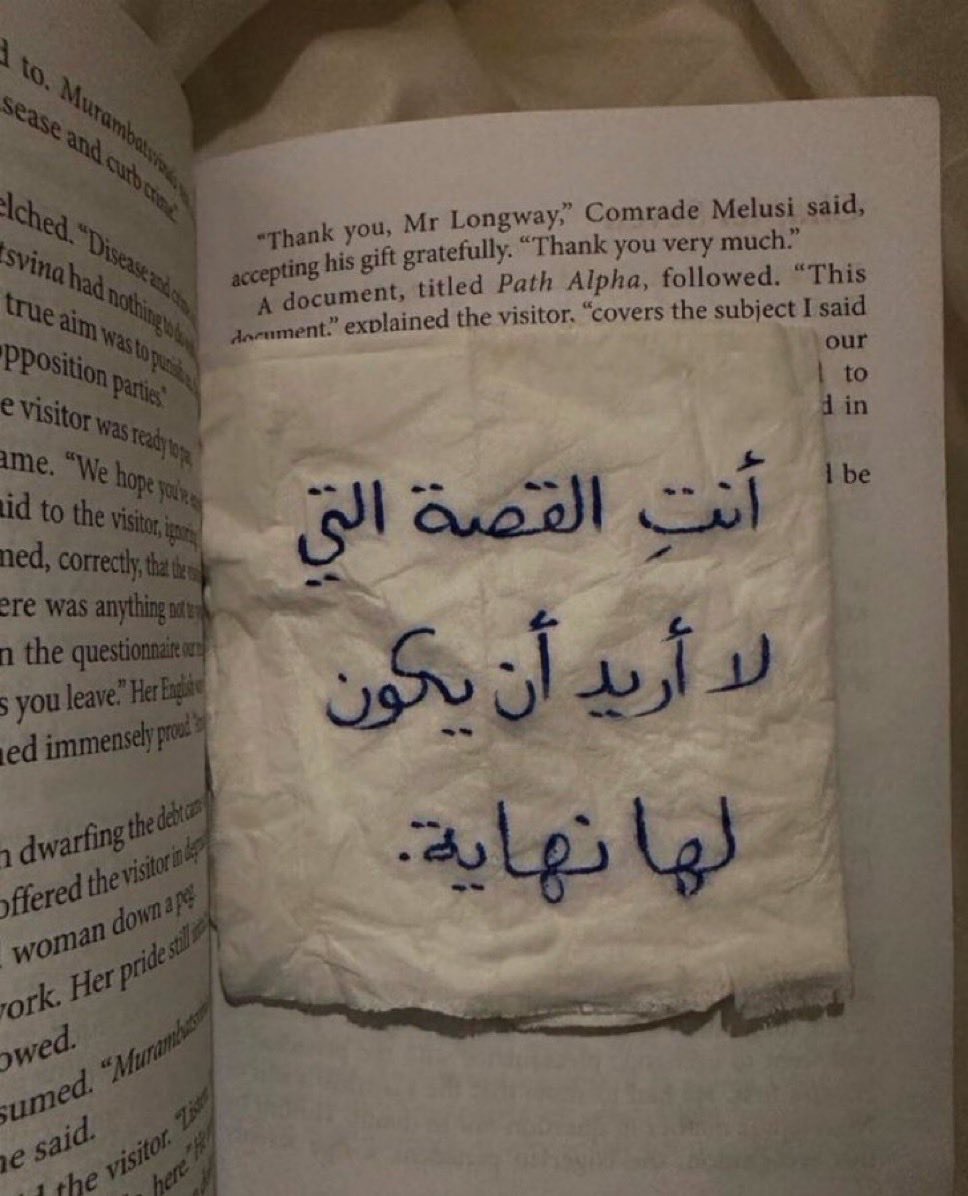 to. Murambatsvina
sease and curb crime."
elched. "Disease and
tsvina had nothing to do
true aim was to punish
opposition parties."
e visitor was ready to
ame. "We hope you've
aid to the visitor, ignoring
med, correctly, that the
ere was anything not to
n the questionnaire our
s you leave." Her English
ned immensely proud
h dwarfing the debt
offered the visitor in
woman down a peg.
work. Her pride still
owed.
sumed. "Murambatsvina
he said.
the visitor. "Listen
here."
"Thank you, Mr Longway," Comrade Melusi said,
accepting his gift gratefully. "Thank you very much."
A document, titled Path Alpha, followed. "This
document," explained the visitor, "covers the subject I said
our
to
d in
be
أنتِ القصة التي
لا أريد أن يكون
لها نهاية.